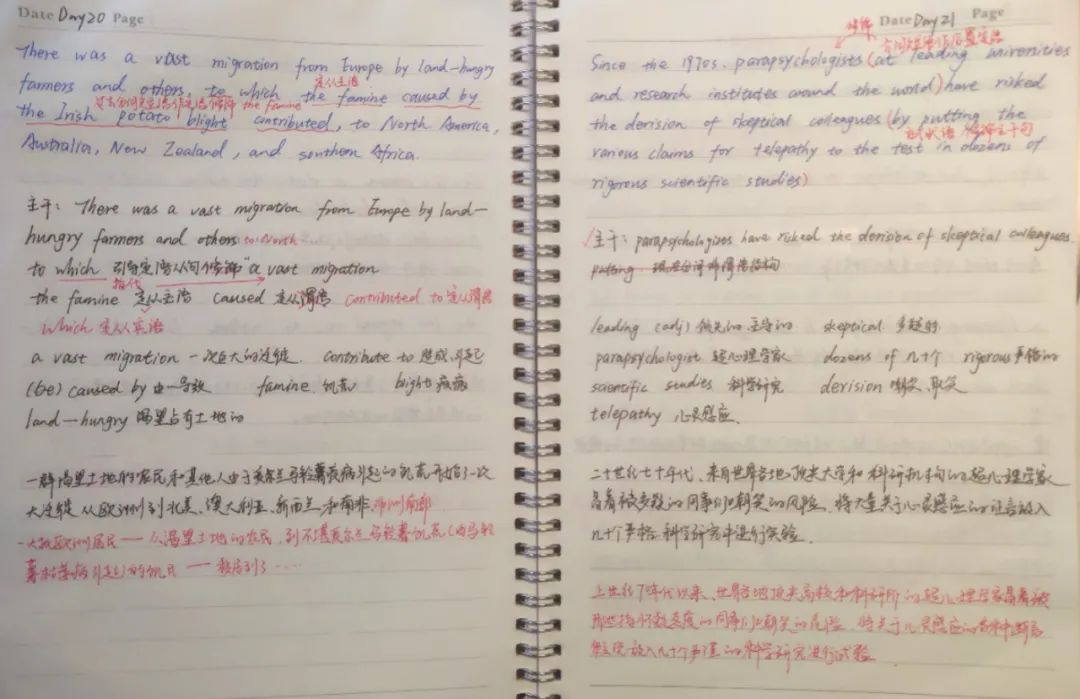 Date Day20 Page
There was a vast migration from Europe by land-hungry
定从主语
farmers and others, to which the famine caused by
过去分词短语作定语修饰 the famine
the Irish potato blight contributed, to North America,
Australia, New Zealand, and southern Africa.
主干: There was a vast migration from Europe by land-
hungry farmers and others to North
to which 引导定语从句修饰 "a vast migration
指代
the famine 定从主语 caused 定从谓语 contributed to 定从谓语
which 定从宾语
a vast migration 一次巨大的迁徙. contribute to 造成,引起
(be) caused by 由…导致 famine. 饥荒 blight 疫病
land-hungry 渴望占有土地的
一群渴望土地的农民和其他人由于爱尔兰马铃薯疾病引起的饥荒开始了一次
大迁徙 从欧洲到北美、澳大利亚、新西兰和南非. 非洲南部
大批欧洲居民——从渴望土地的农民,到不堪爱尔兰马铃薯饥荒(由马铃
薯枯萎病引起)的饥民——移居到了……
Date Day21 Page
修饰
介词短语作后置定语
Since the 1970s, parapsychologists (at leading universities
and research institutes around the world) have risked
the derision of skeptical colleagues (by putting the
方式状语 修饰主干句
various claims for telepathy to the test in dozens of
rigorous scientific studies)
主干: parapsychologises have risked the derision of skeptical colleagues.
putting 现在分词
leading (adj) 领先的.主导的 skeptical 多疑的
parapsychologist 超心理学家 dozens of 几十个 rigorous 严格的
scientific studies 科学研究 derision 嘲笑、取笑
telepathy 心灵感应.
二十世纪七十年代、来自世界各地顶尖大学和科研机构的超心理学家
冒着被多疑的同事们嘲笑的风险. 将大量关于心灵感应的证言放入
几十个严格科学研究中进行实验.
上世纪70年代以来、世界各地顶尖高校和科研所的超心理学家冒着被
那些持怀疑态度的同事们嘲笑的危险. 将关于心灵感应的各种断言
放入几十个严谨的科学研究进行试验.